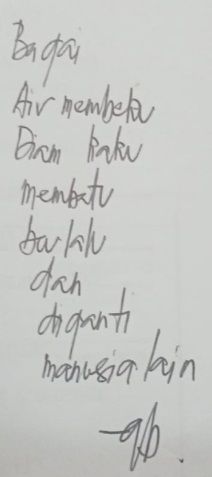 Bagai
Air membeku
Diam kaku
membatu
berlalu
dan
diganti
manusia lain
-qb.